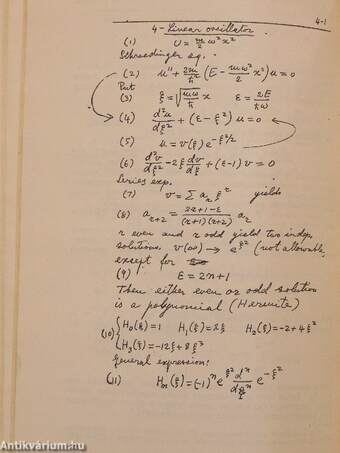 4-1
4- Linear oscillator
(1) U = m/2 ω² x²
Schroedinger eq.
(2) u'' + 2m/ħ² (E - mω²/2 x²) u = 0
Put
(3) ξ = √(mω/ħ) x ε = 2E/ħω
(4) d²u/dξ² + (ε - ξ²) u = 0
(5) u = v(ξ) e^(-ξ²/2)
(6) d²v/dξ² - 2ξ dv/dξ + (ε-1) v = 0
Series exp.
(7) v = Σ a_r ξ^r yields
(8) a_(r+2) = (2r+1-ε)/((r+1)(r+2)) a_r
r even and r odd yield two indep.
solutions. v(∞) → e^(ξ²) (not allowable,
except for
(9) ε = 2n+1
Then either even or odd solution
is a polynomial (Hermite)
(10) { H₀(ξ) = 1 H₁(ξ) = 2ξ H₂(ξ) = -2+4ξ²
H₃(ξ) = -12ξ + 8ξ³
General expression:
(11) Hₙ(ξ) = (-1)^n e^(ξ²) d^n/dξ^n e^(-ξ²)
antikvárium.hu
Antikvárium.hu